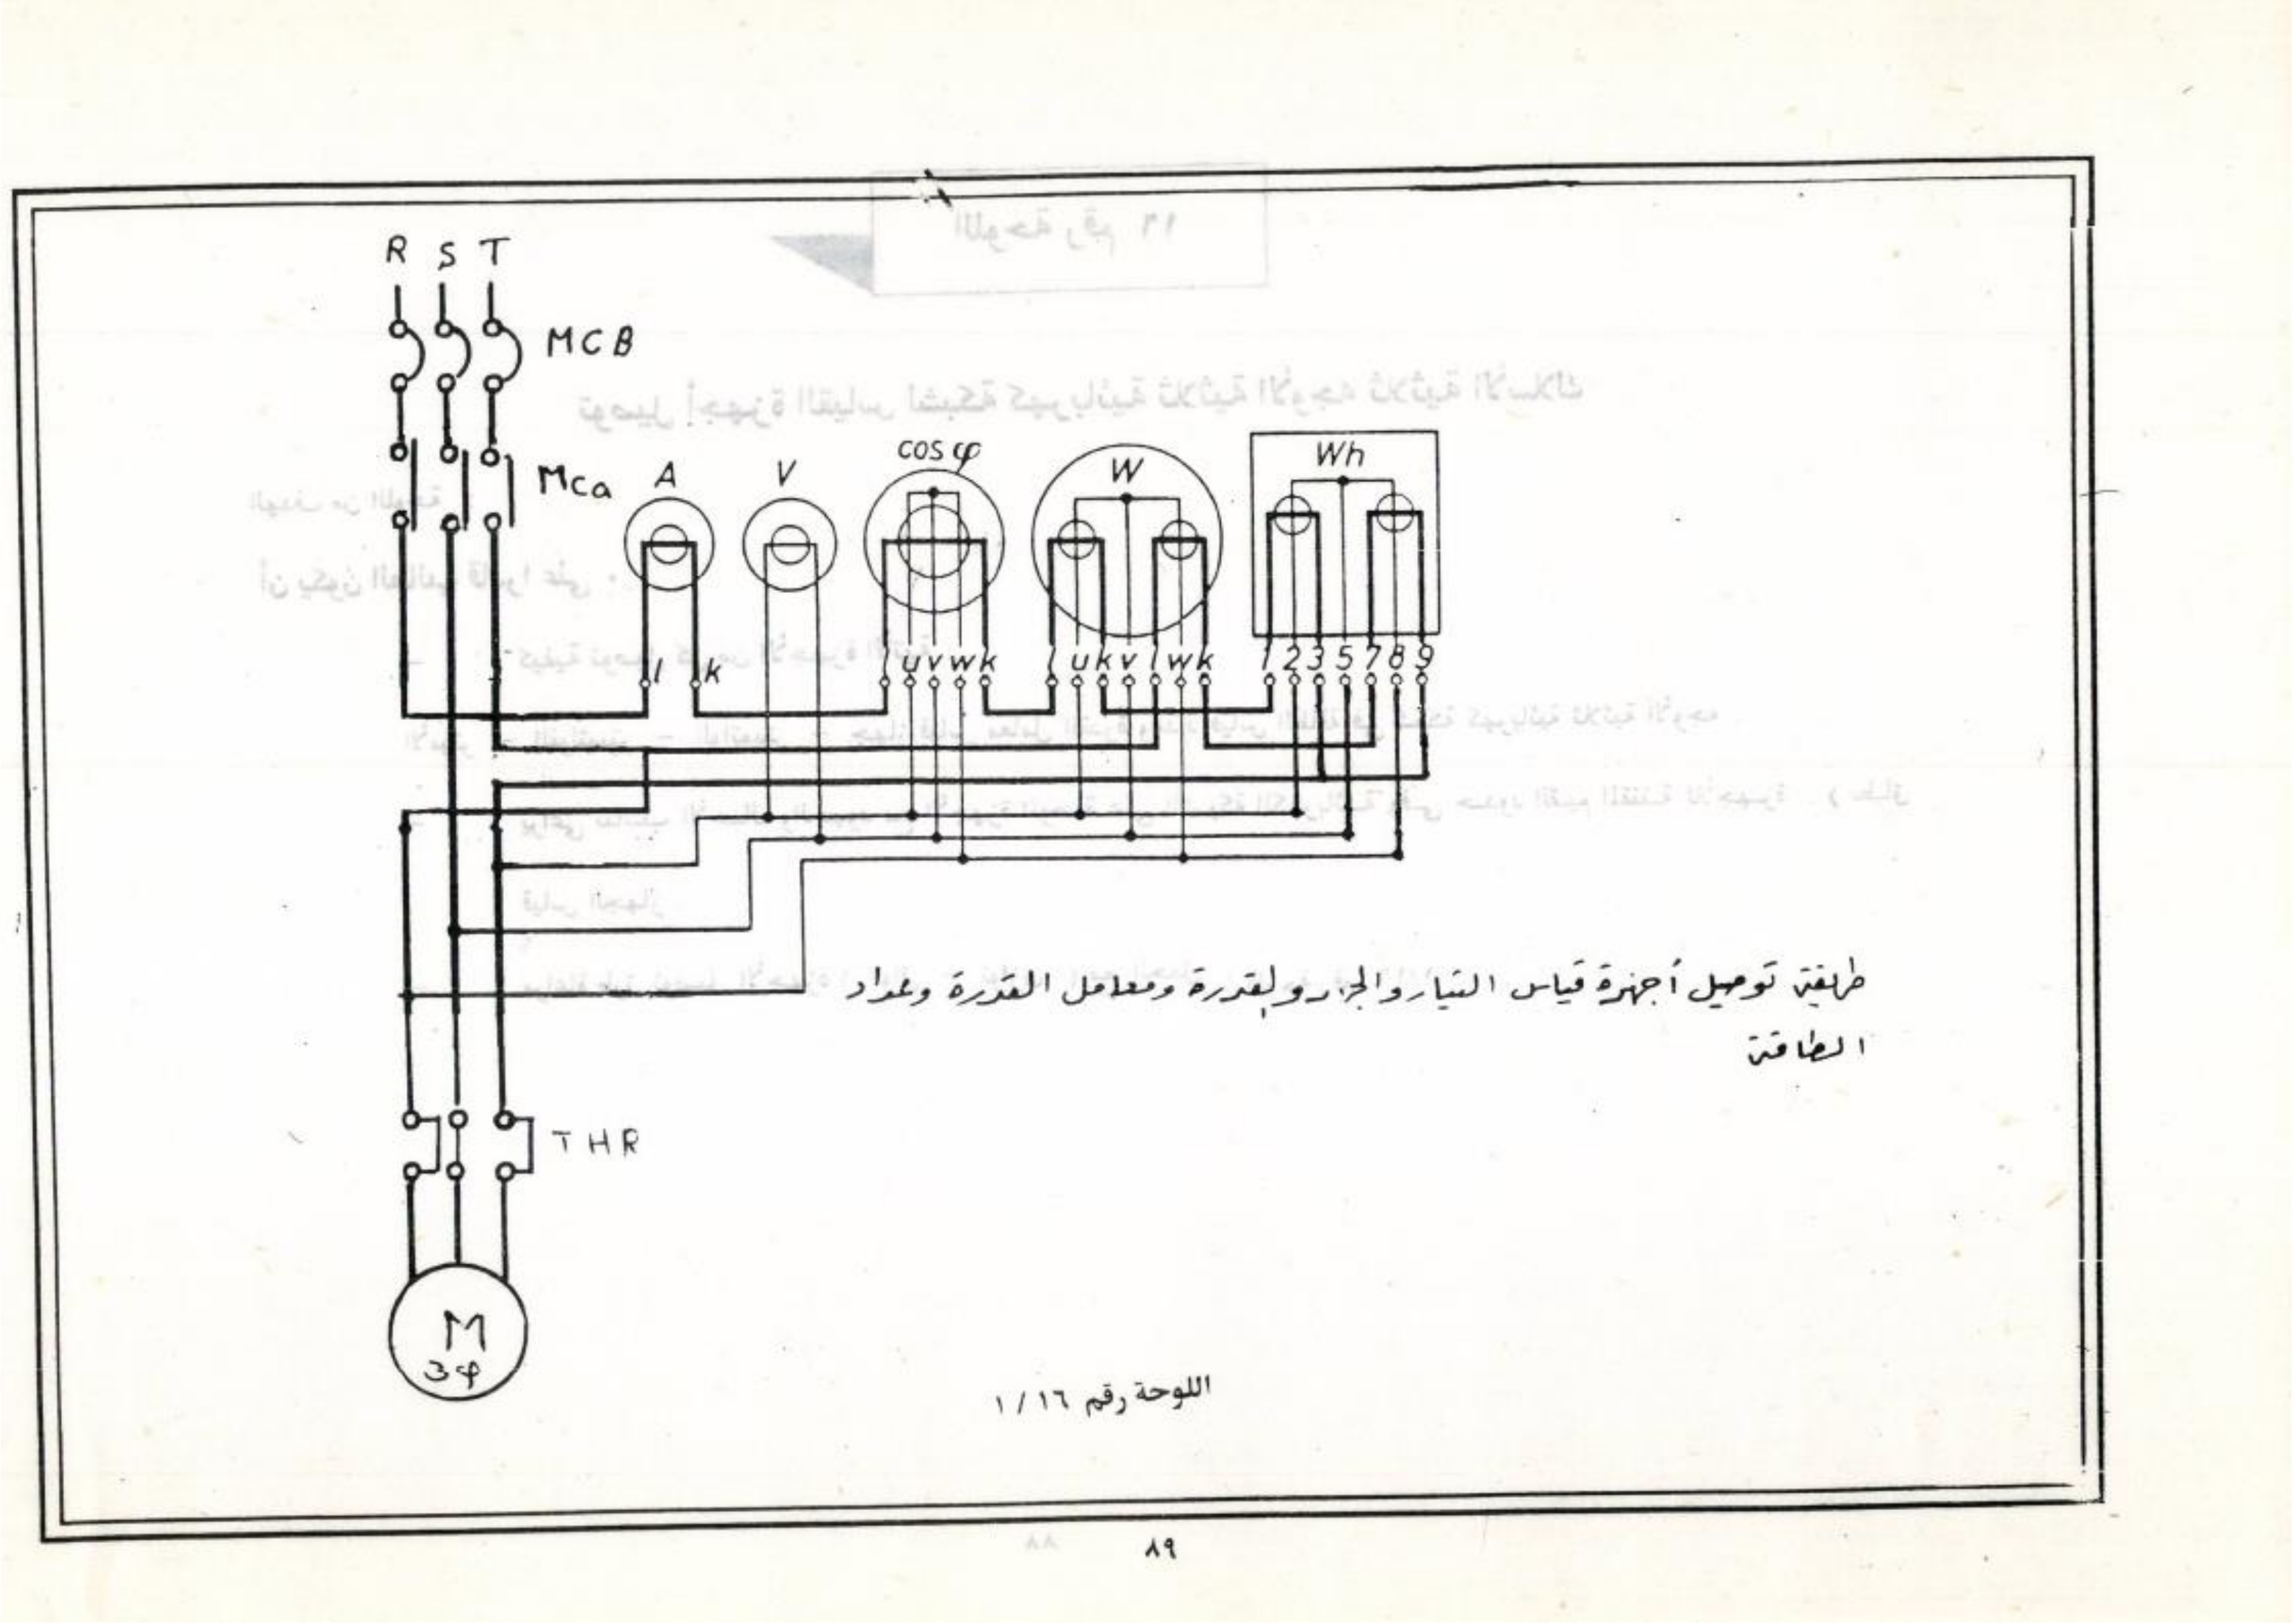 R S T
MCB
Mca
A
V
cos φ
W
Wh
l k
l u v w k
l u k v l w k
1 2 3 5 7 8 9
طريقة توصيل أجهزة قياس التيار والجهد والقدرة ومعامل القدرة وعداد
الطاقة
THR
M
3φ
اللوحة رقم ١٦ / ١
٨٩